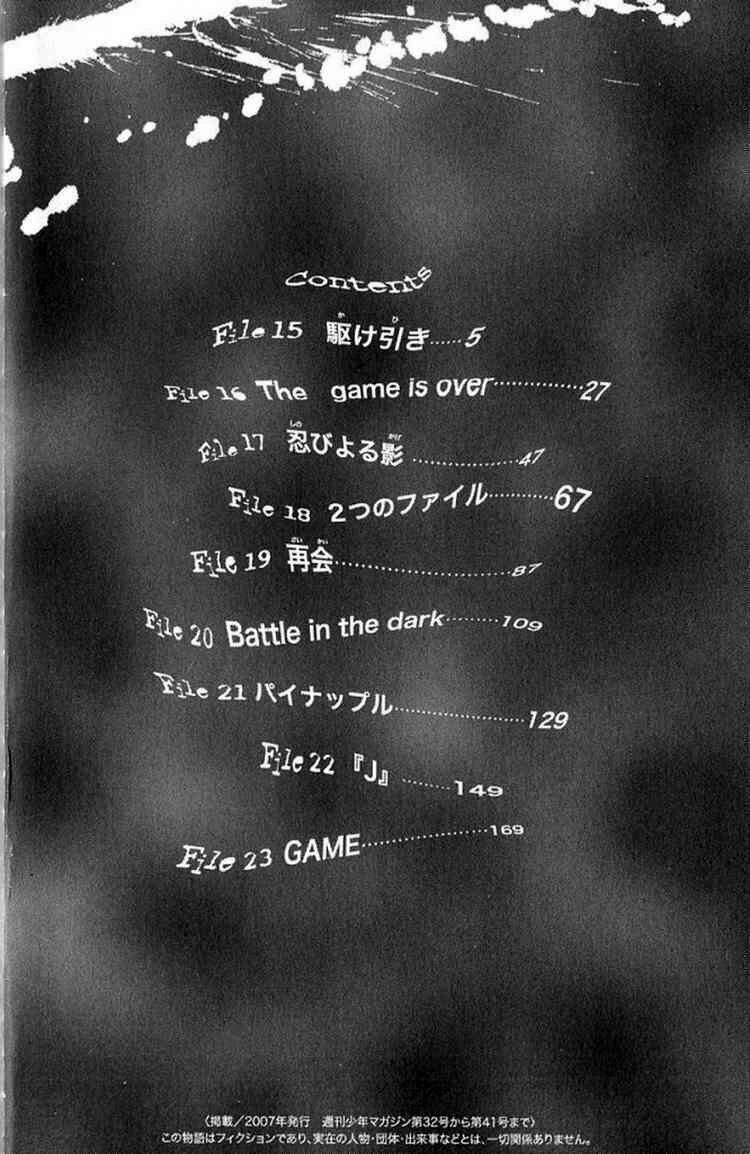 Contents
File 15 駆け引き……5
File 16 The game is over……………27
File 17 忍びよる影……………47
File 18 2つのファイル…………67
File 19 再会………………………87
File 20 Battle in the dark………109
File 21 パイナップル………………129
File 22 『J』………149
File 23 GAME………………169
〈掲載／2007年発行　週刊少年マガジン第32号から第41号まで〉
この物語はフィクションであり、実在の人物・団体・出来事などとは、一切関係ありません。